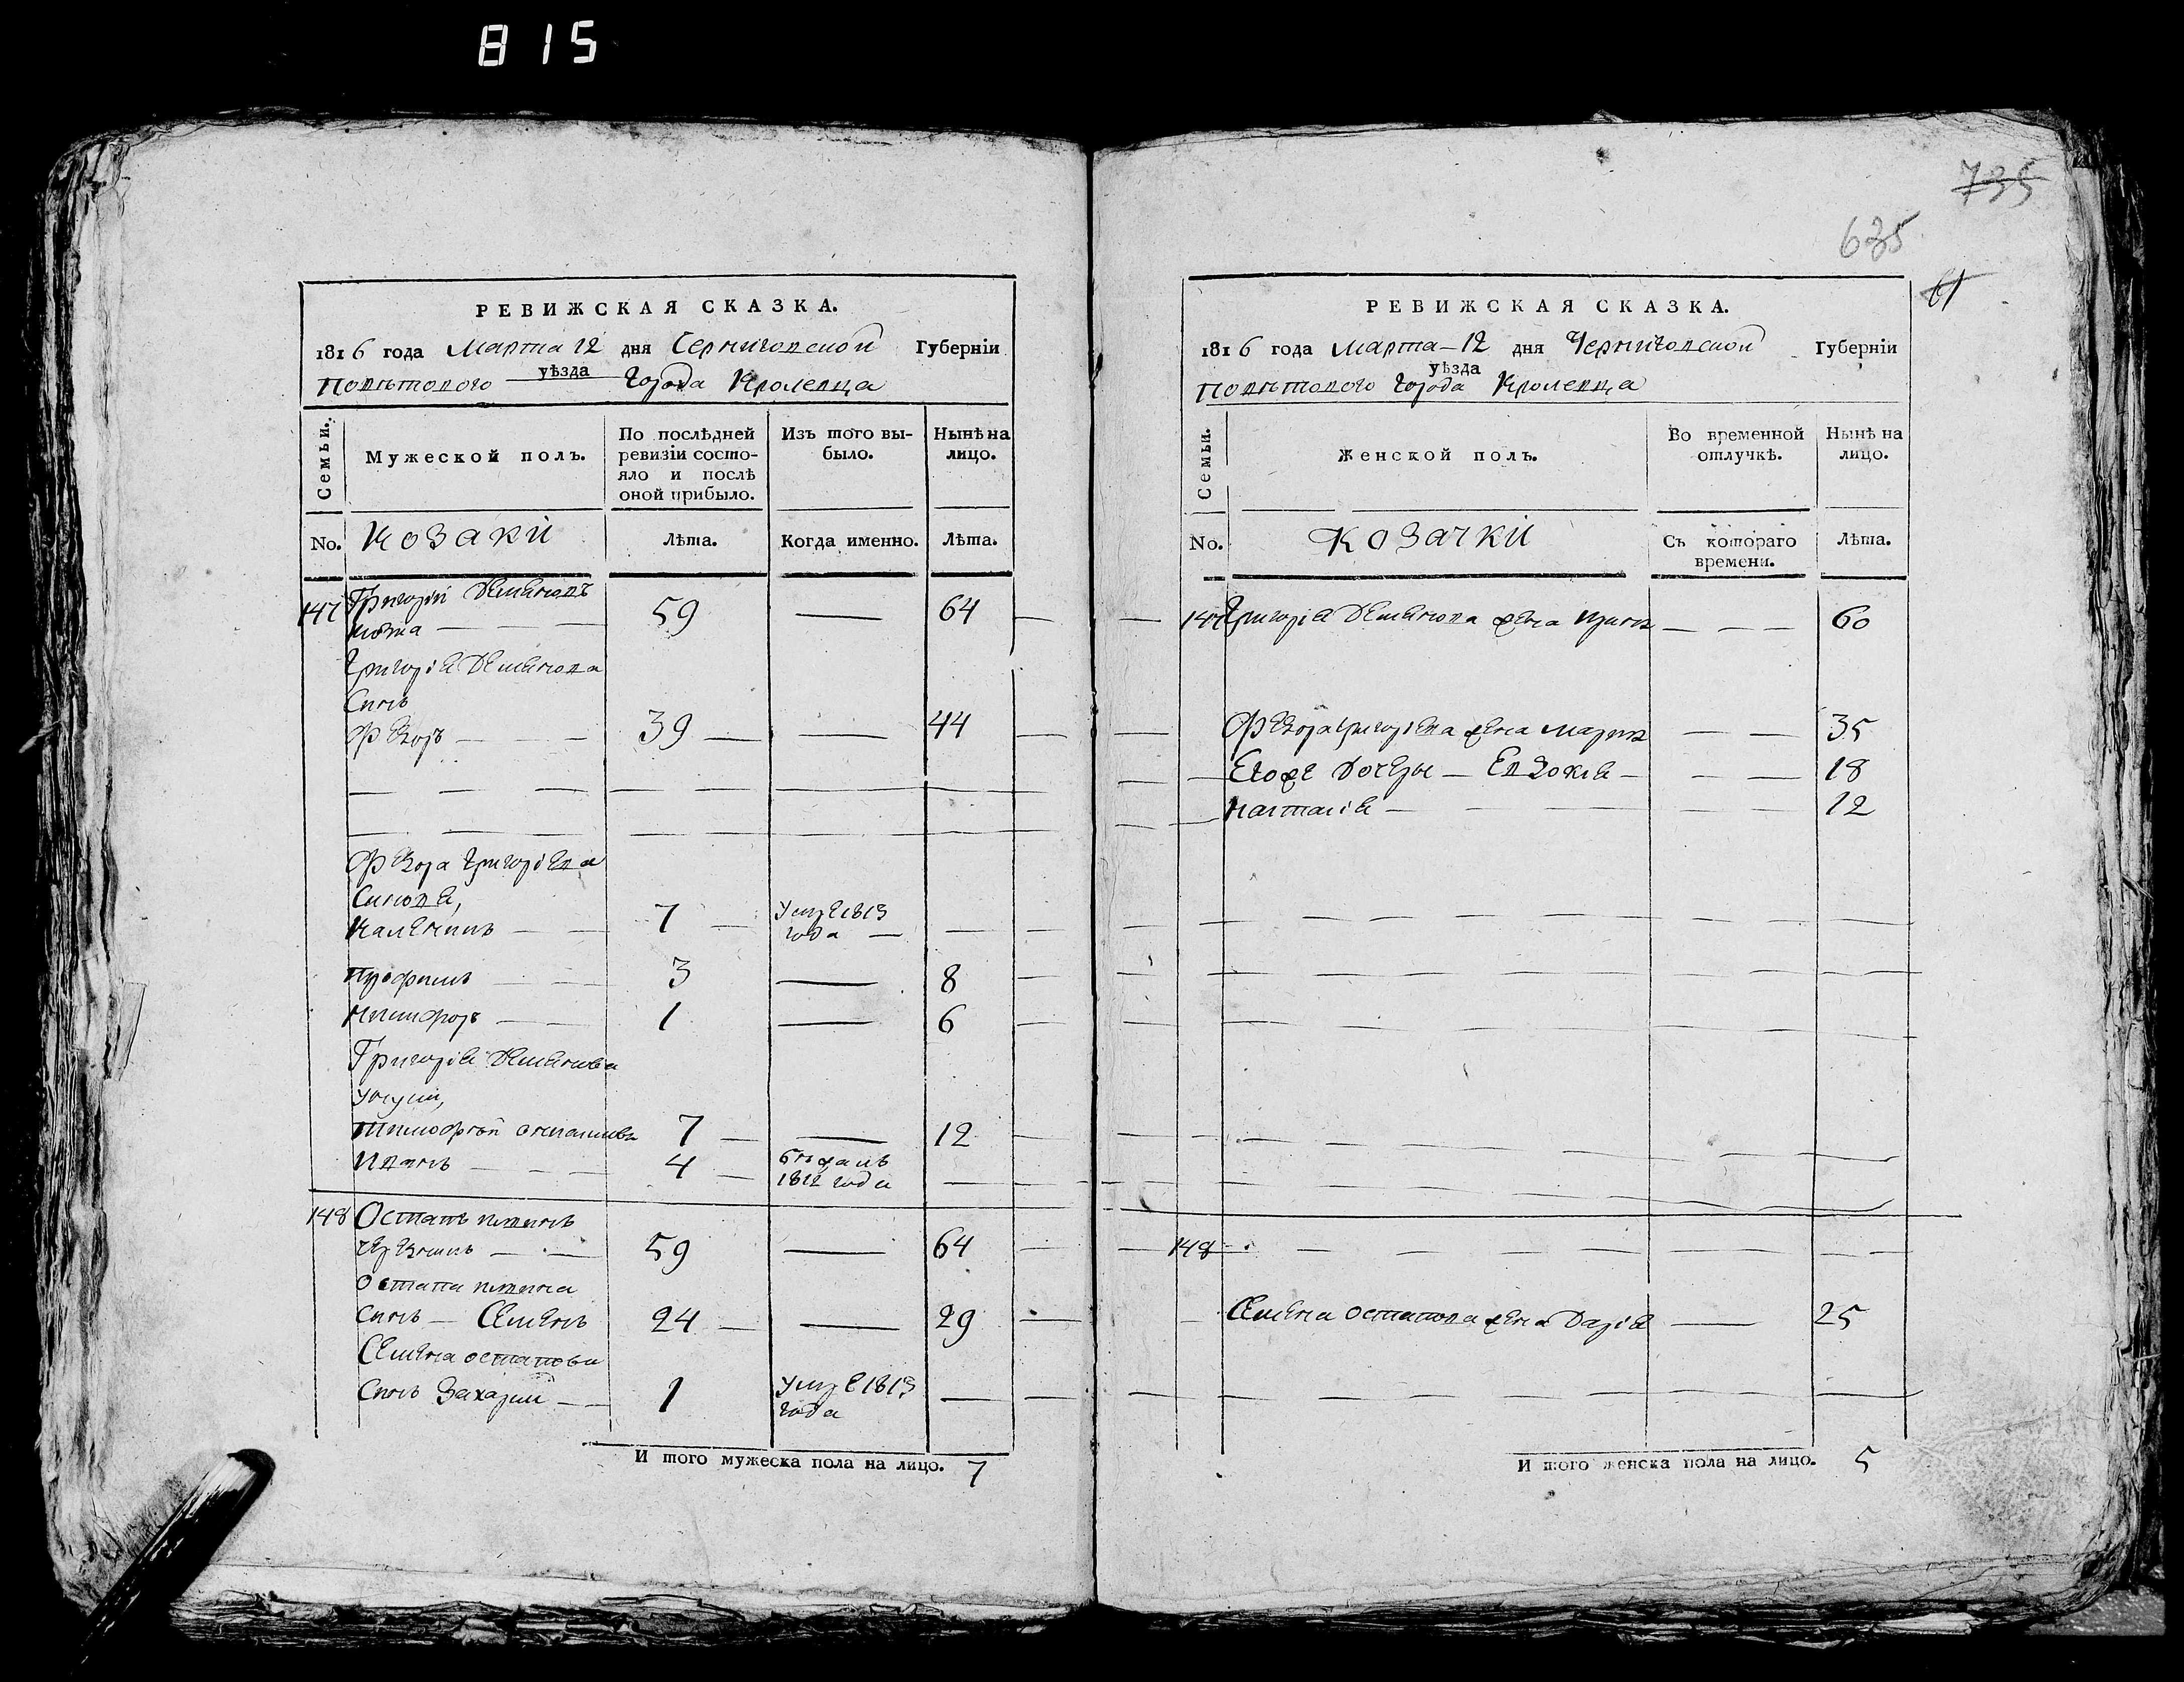 815
РЕВИЖСКАЯ СКАЗКА.
1816 года Марта 12 дня Черниговской Губерніи
уѣзда
Повѣтового города Кролевца
Семьи.
Мужеской полъ.
По послѣдней ревизіи состо-
яло и послѣ
оной прибыло.
Изъ того вы-
было.
Нынѣ на
лицо.
No. Козаки Лѣта. Когда именно. Лѣта.
147 Григорій Деменовъ
59 — 64
Григоріа Деменова
Синъ
Федоръ — 39 — 44
Федора Григоріева
Синова,
7 Умре 1813
года —
Трофимъ — 3 — 8
Никифоръ — 1 — 6
Григоріа Деменова
Тимофѣй 7 — 12
Иванъ — 4 — бѣжалъ
1812 года —
148 Остапъ
59 — 64
Остапа
Синъ — Семенъ 24 — 29
Семена Остапова
Синъ Захарий — 1 Умре 1813
года —
И того мужеска пола на лицо. 7
735
635
61
РЕВИЖСКАЯ СКАЗКА.
1816 года Марта — 12 дня Черниговской Губерніи
уѣзда
Повѣтового города Кролевца
Семьи.
Женской полъ.
Во временной
отлучкѣ.
Нынѣ на
лицо.
No. Козачки Съ котораго
времени.
Лѣта.
147 Григоріа Деменова жена — 60
Федора Григоріева жена Мария — 35
Егоже дочеры — Евдокиа — 18
Наталіа — 12
148
Семена Остапова жена Даріа — 25
И того женска пола на лицо. 5